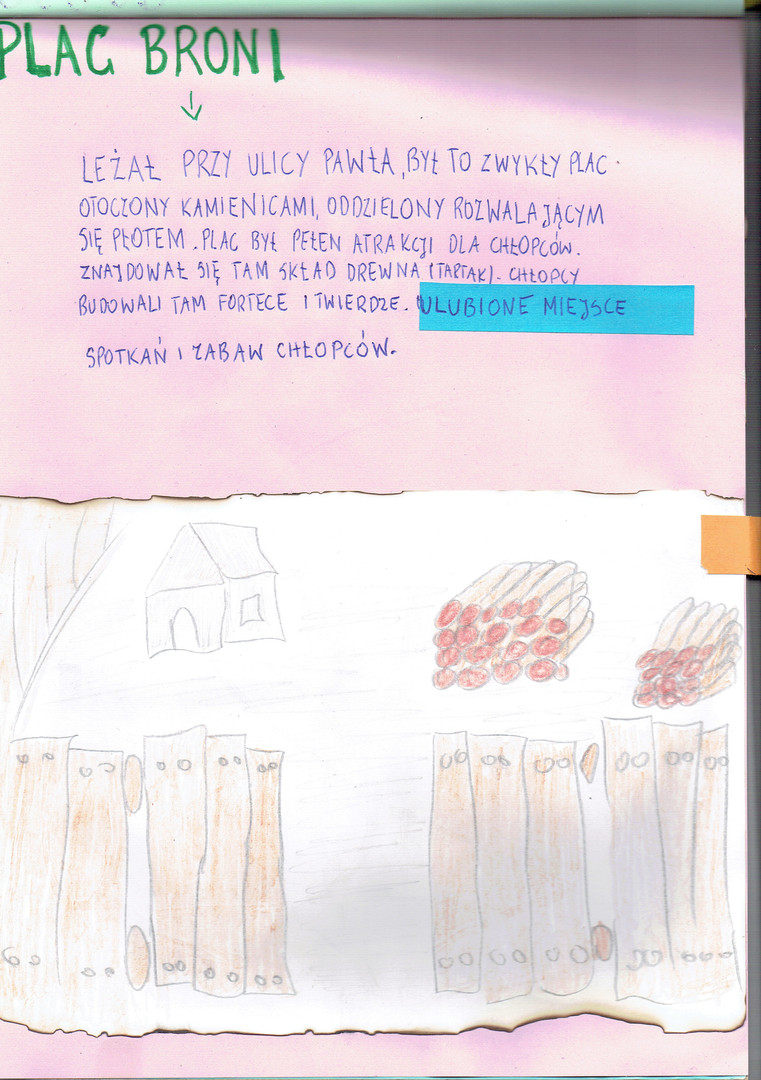 PLAC BRONI
LEŻAŁ PRZY ULICY PAWŁA, BYŁ TO ZWYKŁY PLAC
OTOCZONY KAMIENICAMI, ODDZIELONY ROZWALAJĄCYM
SIĘ PŁOTEM. PLAC BYŁ PEŁEN ATRAKCJI DLA CHŁOPCÓW.
ZNAJDOWAŁ SIĘ TAM SKŁAD DREWNA (TARTAK). CHŁOPCY
BUDOWALI TAM FORTECE I TWIERDZE. ULUBIONE MIEJSCE
SPOTKAŃ I ZABAW CHŁOPCÓW.